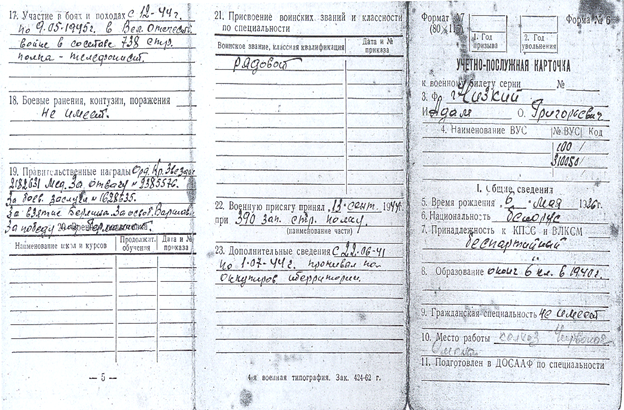 17. Участие в боях и походах с 12-44г.
по 9.05-1945г. в Вел. Отечест.
войне в составе 738 стр.
полка - телефонист.
18. Боевые ранения, контузии, поражения
не имеет.
19. Правительственные награды Орд. Кр. Звезды
2182631 Мед. За отвагу №3385576.
За боев. заслуги №1628635.
За взятие Берлина. За освоб. Варшавы
За победу
Наименование школ и курсов
Продолжит. обучения
Дата и № приказа
— 5 —
21. Присвоение воинских званий и классности
по специальности
Воинское звание, классная квалификация
Дата и № приказа
рядовой
22. Военную присягу принял 13 сент. 1944г.
при 390 зап. стр. полку
(наименование части)
23. Дополнительные сведения С 22-06-41
по 1-07-44г. проживал на
оккупиров. территории.
4-я военная типография. Зак. 424-62 г.
Формат
Форма № 6
1. Год призыва
2. Год увольнения
УЧЕТНО-ПОСЛУЖНАЯ КАРТОЧКА
к военному билету серии №
3. Чизкий
Адам О. Григорьевич
4. Наименование ВУС
№ ВУС
Код
1. Общие сведения
5. Время рождения 6 мая 1926г.
6. Национальность белорус
7. Принадлежность к КПСС и ВЛКСМ
беспартийный
8. Образование оконч 6 кл. в 1940г.
9. Гражданская специальность не имеет
10. Место работы колхоз
11. Подготовлен в ДОСААФ по специальности